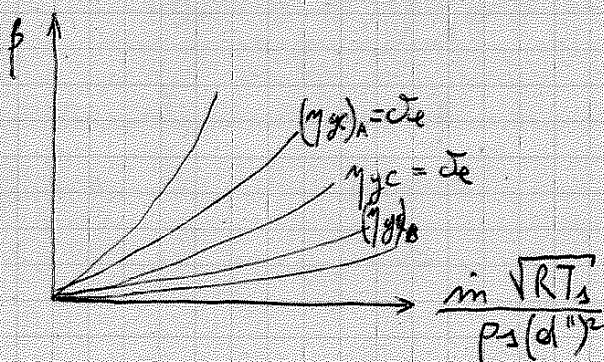 β
(ηyc)A = cte
ηyc = cte
(ηyc)B
ṁ √RT1
p1(d")²